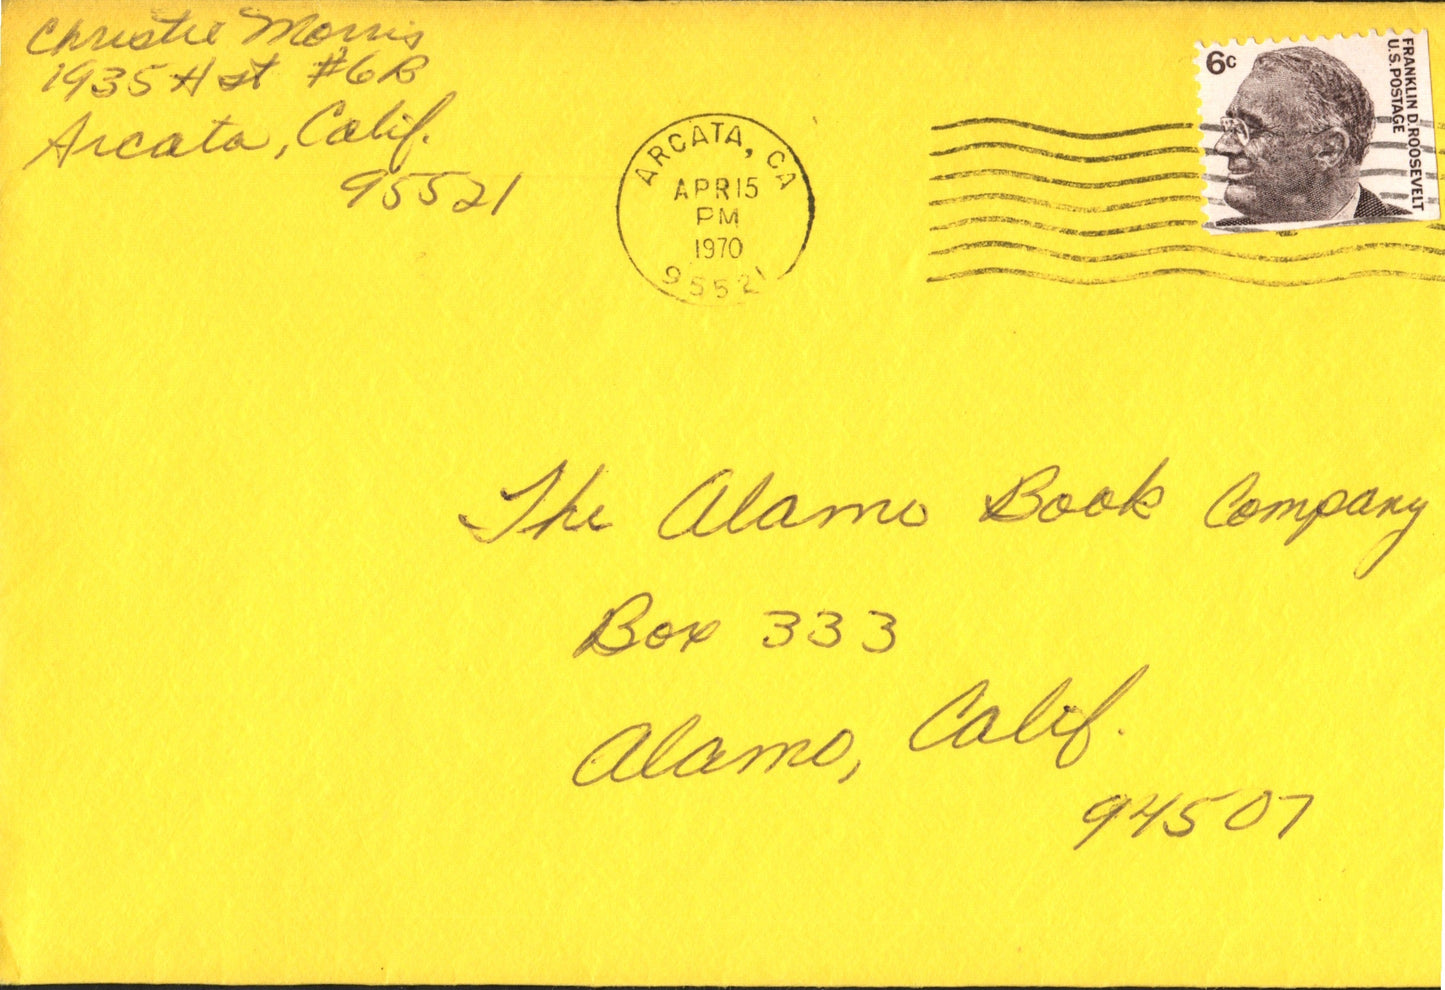 Christie Morris
1935 H st #6B
Arcata, Calif.
95521
ARCATA, CA
APR 15
PM
1970
95521
6c
FRANKLIN D. ROOSEVELT
U.S. POSTAGE
The Alamo Book Company
Box 333
Alamo, Calif.
94507